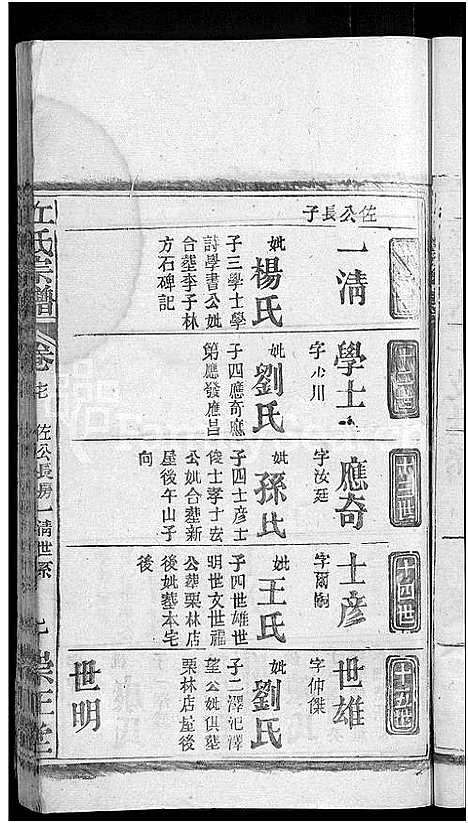 佐公長子
一清
妣楊氏
子三學士學
詩學書公妣
合塟李子林
方石碑記
十二世
學士
字少川
妣劉氏
子四應奇應
第應發應昌
十三世
應奇
字汝廷
妣孫氏
子四士彦士
俊士孝士宏
公妣合塟新
屋後午山子
向
十四世
士彦
妣王氏
子四世雄世
明世文世龍
公塟栗林店
後妣塟本宅
後
十五世
世雄
字仲傑
妣劉氏
子二澤汜澤
望公妣俱塟
栗林店屋後
世明
丘氏宗譜
卷
佐公長房一清世系
七
崇正堂